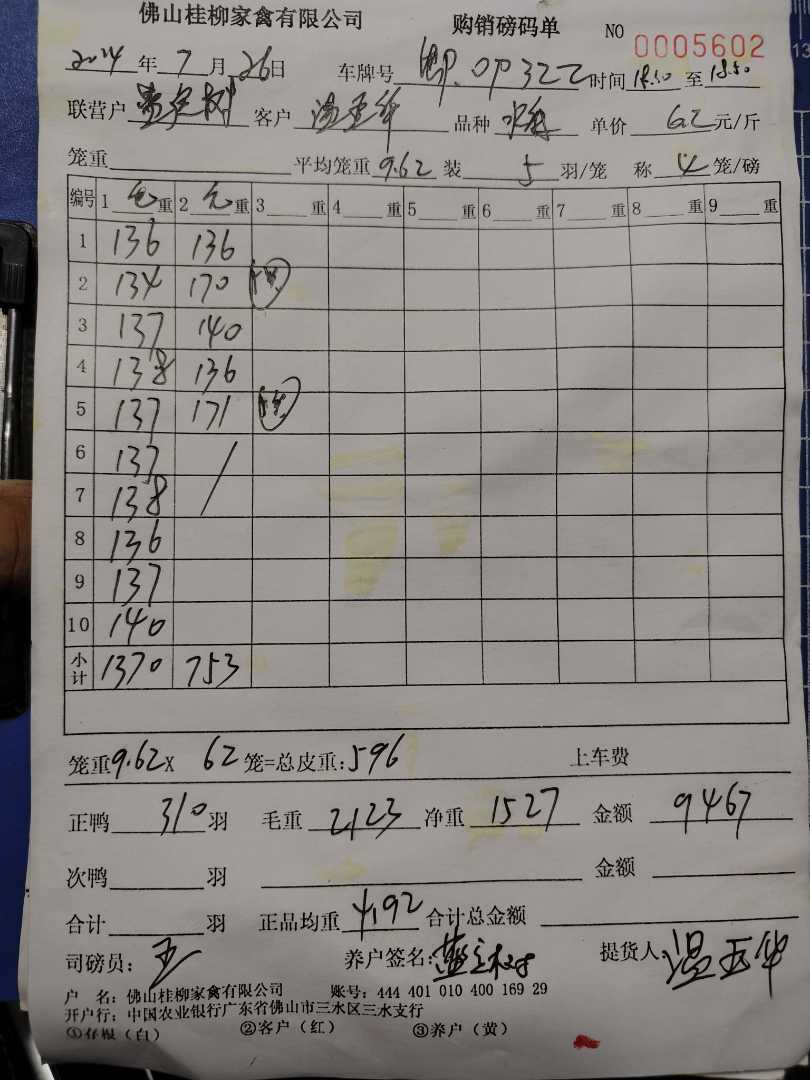 佛山桂柳家禽有限公司 购销磅码单 NO 0005602
2024 年 7 月 26 日 车牌号 OP322 时间 18.30 至 18.50
联营户 客户 温玉华 品种 单价 6.2 元/斤
笼重 平均笼重 9.62 装 5 羽/笼 称 4 笼/磅
编号 1 毛 重 2 毛 重 3 重 4 重 5 重 6 重 7 重 8 重 9 重
1 136 136
2 134 170
3 137 140
4 138 136
5 137 171
6 137 /
7 138
8 136
9 137
10 140
小计 1370 753
笼重 9.62 X 62 笼=总皮重: 596 上车费
正鸭 310 羽 毛重 2123 净重 1527 金额 9467
次鸭 羽 金额
合计 羽 正品均重 4.92 合计总金额
司磅员: 王 养户签名: 提货人: 温玉华
户 名: 佛山桂柳家禽有限公司 账号: 444 401 010 400 169 29
开户行: 中国农业银行广东省佛山市三水区三水支行
①存根（白） ②客户（红） ③养户（黄）